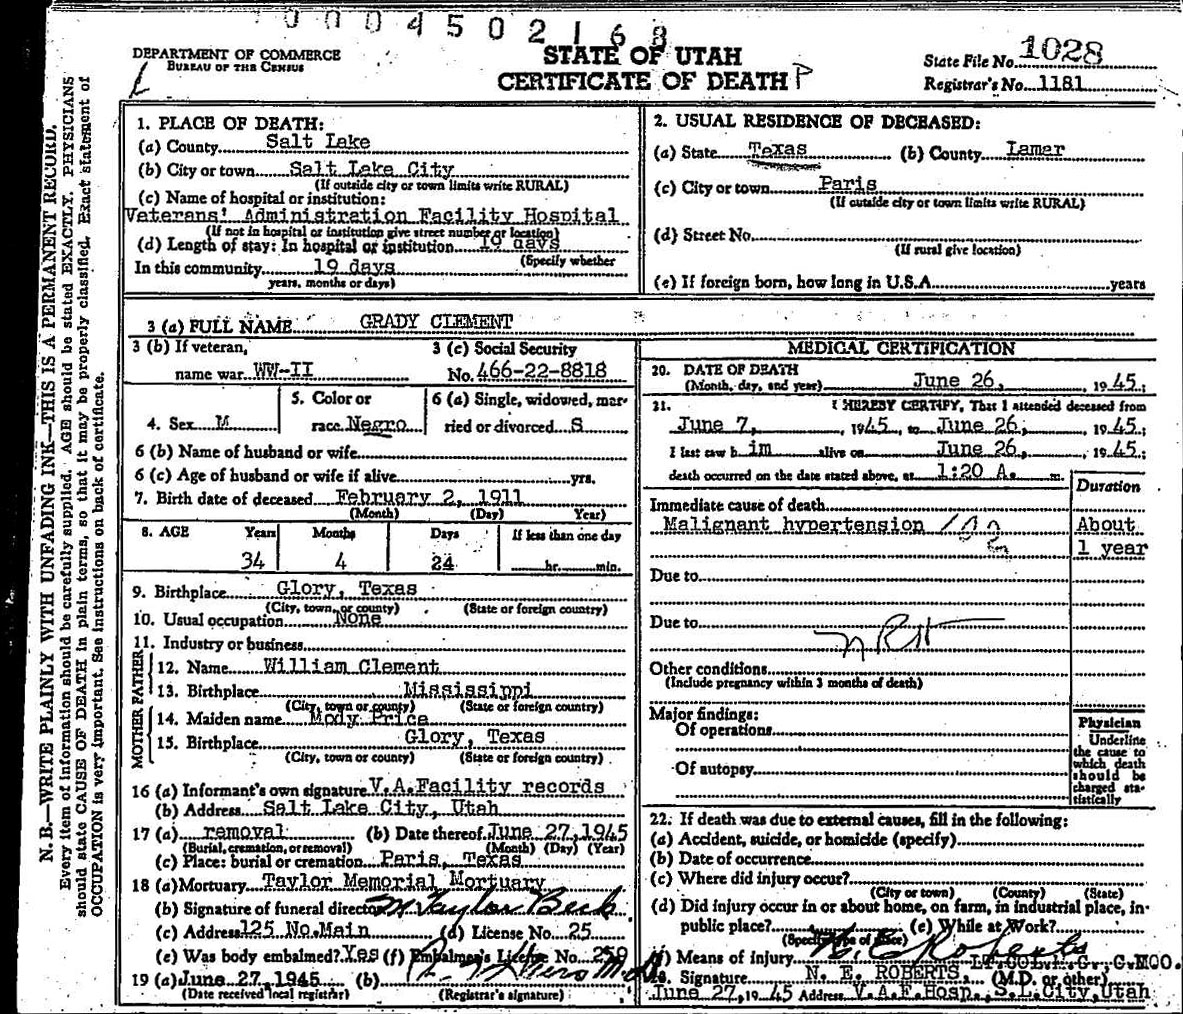 0004502168
DEPARTMENT OF COMMERCE
BUREAU OF THE CENSUS
STATE OF UTAH
CERTIFICATE OF DEATH P
State File No. 1028
Registrar's No. 1181
N. B.—WRITE PLAINLY WITH UNFADING INK—THIS IS A PERMANENT RECORD.
Every item of information should be carefully supplied. AGE should be stated EXACTLY. PHYSICIANS
should state CAUSE OF DEATH in plain terms, so that it may be properly classified. Exact statement of
OCCUPATION is very important. See instructions on back of certificate.
1. PLACE OF DEATH:
(a) County Salt Lake
(b) City or town Salt Lake City
(If outside city or town limits write RURAL)
(c) Name of hospital or institution:
Veterans' Administration Facility Hospital
(If not in hospital or institution give street number or location)
(d) Length of stay: In hospital or institution 19 days
(Specify whether
In this community 19 days
years, months or days)
2. USUAL RESIDENCE OF DECEASED:
(a) State Texas (b) County Lamar
(c) City or town Paris
(If outside city or town limits write RURAL)
(d) Street No.
(If rural give location)
(e) If foreign born, how long in U.S.A. years
3 (a) FULL NAME GRADY CLEMENT
3 (b) If veteran,
name war WW-II
3 (c) Social Security
No. 466-22-8818
4. Sex M
5. Color or
race Negro
6 (a) Single, widowed, mar-
ried or divorced S
6 (b) Name of husband or wife
6 (c) Age of husband or wife if alive yrs.
7. Birth date of deceased February 2, 1911
(Month) (Day) Year)
8. AGE Years Months Days If less than one day
34 4 24 hr. min.
9. Birthplace Glory, Texas
(City, town, or county) (State or foreign country)
10. Usual occupation None
11. Industry or business
FATHER
12. Name William Clement
13. Birthplace Mississippi
(City, town or county) (State or foreign country)
MOTHER
14. Maiden name Mody Price
15. Birthplace Glory, Texas
(City, town or county) (State or foreign country)
16 (a) Informant's own signature V.A.Facility records
(b) Address Salt Lake City, Utah
17 (a) removal (b) Date thereof June 27, 1945
(Burial, cremation, or removal) (Month) (Day) (Year)
(c) Place: burial or cremation Paris, Texas
18 (a) Mortuary Taylor Memorial Mortuary
(b) Signature of funeral director M Taylor Beck
(c) Address 125 No.Main (d) License No. 25
(e) Was body embalmed? Yes (f) Embalmer's License No. 259
19 (a) June 27, 1945 (b)
(Date received local registrar) (Registrar's signature)
MEDICAL CERTIFICATION
20. DATE OF DEATH
(Month, day, and year) June 26, 1945;
21. I HEREBY CERTIFY, That I attended deceased from
June 7, 1945, to June 26, 1945;
I last saw h im alive on June 26, 1945;
death occurred on the date stated above, at 1:20 A. m.
Duration
Immediate cause of death
Malignant hypertension About
1 year
Due to
Due to
Other conditions
(Include pregnancy within 3 months of death)
Major findings:
Of operations
Of autopsy
Physician
Underline
the cause to
which death
should be
charged sta-
tistically
22. If death was due to external causes, fill in the following:
(a) Accident, suicide, or homicide (specify)
(b) Date of occurrence
(c) Where did injury occur?
(City or town) (County) (State)
(d) Did injury occur in or about home, on farm, in industrial place, in-
public place? (e) While at Work?
(Specify type of place)
(f) Means of injury N. E. Roberts
Signature N. E. ROBERTS (M.D. or other)
June 27, 1945 Address V.A.F. Hosp., S.L.City, Utah